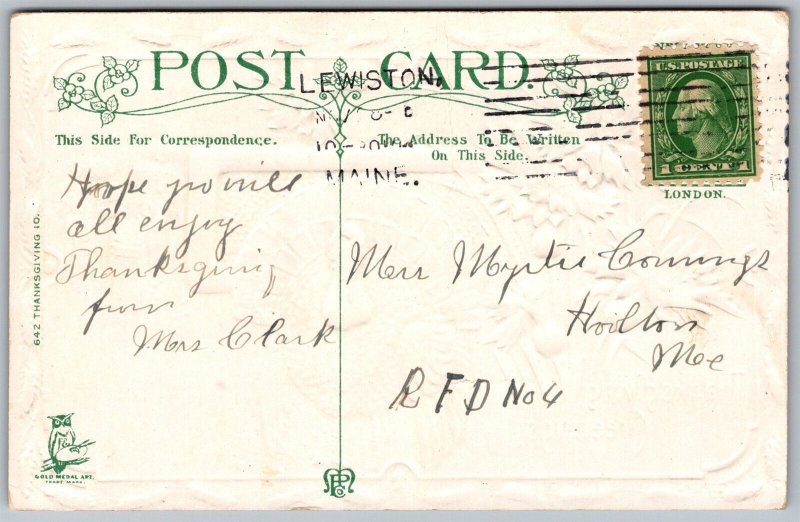 POST CARD.
LEWISTON,
MAINE.
U.S. POSTAGE
1 CENT 1
LONDON.
This Side For Correspondence.
The Address To Be Written
On This Side.
Hope you will
all enjoy
Thanksgiving
from
Mrs Clark
Myrtie Cummings
Houlton
Me
R F D No 4
642 THANKSGIVING 10.
GOLD MEDAL ART,
TRADE MARK.